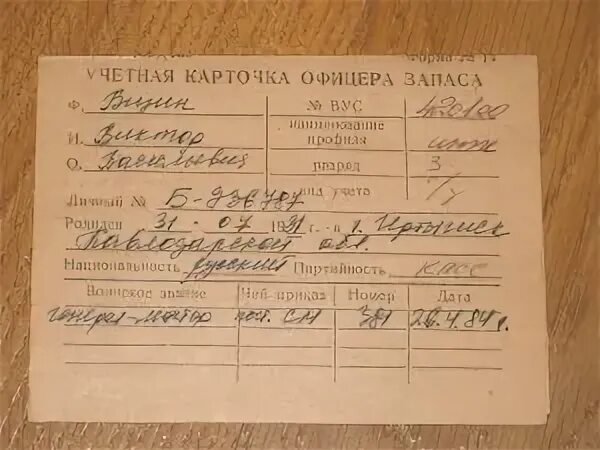 УЧЕТНАЯ КАРТОЧКА ОФИЦЕРА ЗАПАСА
Ф. № ВУС 420100
И. Виктор наименование профиля
О. Васильевич разряд 3
вид учета
Личный № Б-936787
Родился 31 - 07 1931 г. в г. Иртышск
Павлодарской обл.
Национальность русский Партийность КПСС
Воинское звание Чей приказ Номер Дата
генерал-майор СМ 381 26.4.84 г.